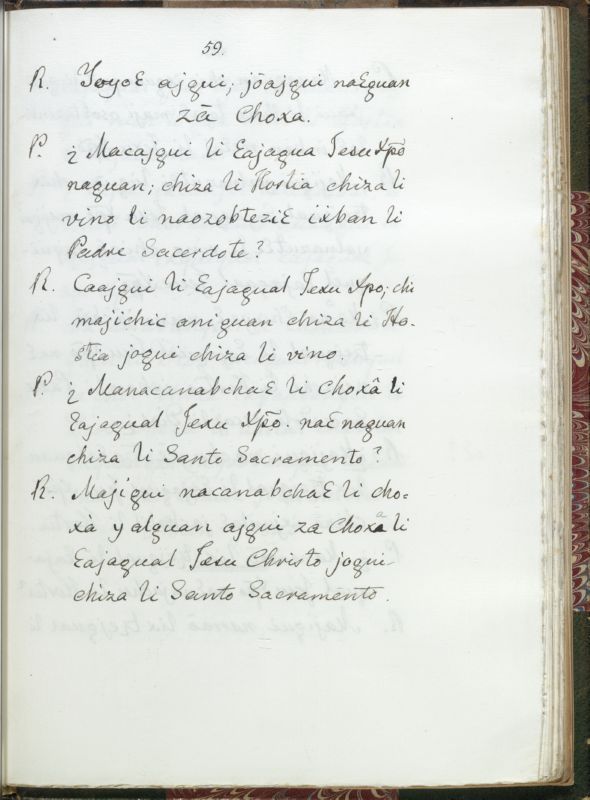 59.
R. Yoyoɛ ajgui; jōajgui naɛguan
zā Choxa.
P. ¿ Macajgui li ɛajagua Jesu Xp̄o
naguan; chiza li Hostia chiza li
vino li naozobteziɛ ixban li
Padre Sacerdote?
R. Caajgui li ɛajagual Jexu Xpo; chi
majichic aniguan chiza li Ho-
stia jogui chiza li vino.
P. ¿ Manacanabchaɛ li Choxâ li
ɛajagual Jexu Xp̄o. naɛ naguan
chiza li Santo Sacramento?
R. Majígui nacanabchaɛ li cho=
xà y alguan ajgui za Choxa li
ɛajagual Jesu Christo jogui
chiza li Santo Sacramento.